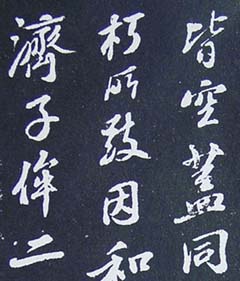 皆空盖同
朽所致因和
濟子倅二